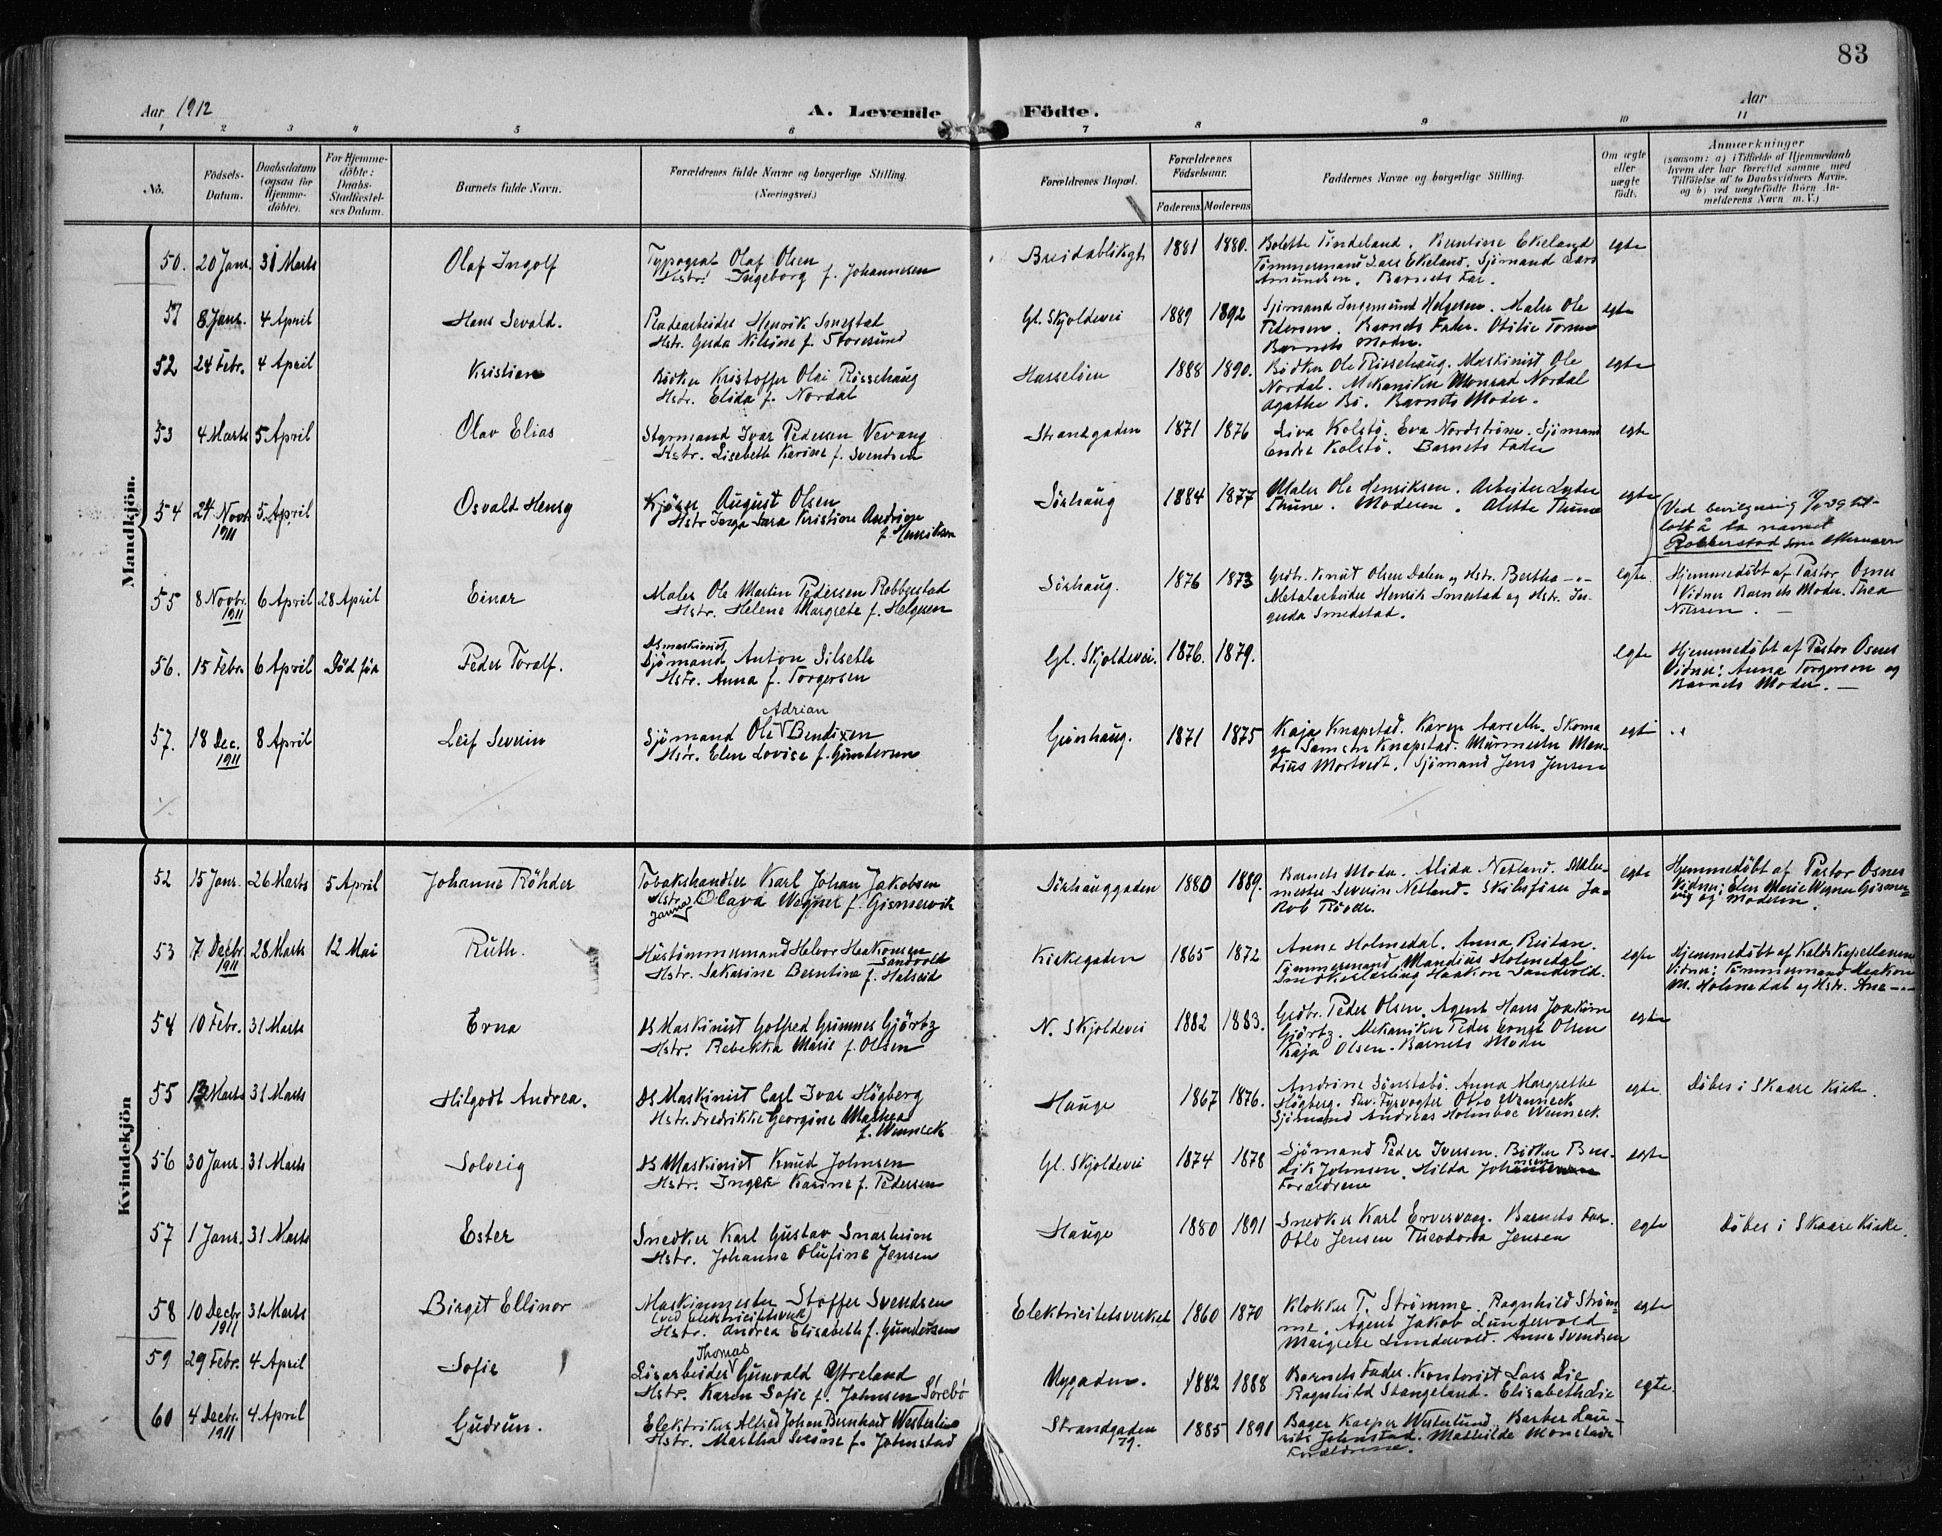 83
Aar 1912
A. Levende Födte.
Aar
1 2 3 4 5 6 7 8 9 10 11
No.
Födsels-Datum.
Daabsdatum (ogsaa for Hjemme-döbte).
For Hjemme-döbte: Daabs-Stadfæstel-ses Datum.
Barnets fulde Navn.
Forældrenes fulde Navne og borgerlige Stilling.
(Næringsvei.)
Forældrenes Bopæl.
Forældrenes Födselsaar.
Faderens. Moderens
Faddernes Navne og borgerlige Stilling.
Om ægte eller uægte födt.
Anmærkninger
(saasom: a) i Tilfælde af Hjemmedaab
hvem der har forrettet samme med
Tilföielse af to Daabsvidners Navne.
og b) ved uægtefödte Börn An-
melderens Navn m. V.)
Mandkjön.
50. 20 Janr. 31 Marts Olaf Ingolf
Typograf Olaf Olsen
Hstr. Ingeborg f. Johannesen
Breidabliksgt 1881 1880.
Bolette Tindeland. Berntine Ekeland
Tømmermand Lars Ekeland. Sjømand Lars
Amundsen. Barnets Far.
egte
51 8 Janr. 4 April Hans Sevald.
Henrik Smestad
Hstr. Guda Nilsine f. Storesund
Gl. Skjoldevei 1889 1892
Sjømand Ingemund Helgesen. Maler Ole
Pedersen. Barnets Fader. Otilie
Barnets Moder.
egte
52 24 Febr. 4 April Kristian
Bødker Kristoffer Olai Røssehaug
Hstr. Elida f. Nordal
Hasseløen 1888 1890.
Bødker Ole Røssehaug. Maskinist Ole
Nordal. Mekaniker Monrad Nordal
Agathe Bø. Barnets Moder.
egte
53 4 Marts 5 April Olav Elias
Styrmand Ivar Pedersen Vevang
Hstr. Lisebeth Karine f. Svendsen
Strandgaden 1871 1876
Kolstø. Eva Nordstrøm. Sjømand
Endre Kolstø. Barnets Fader
egte
54 24 Novb. 1911 5 April Osvald Henry
August Olsen
Hstr Inga Sara Kristine Andrine
f. Henriksen
Sørhaug 1884 1877
Maler Ole Henriksen. Arbeider
Thune. Moderen. Alette Thune
egte
Ved bevilgning 29 til-
latt å ta navnet
som etternavn
55 8 Novbr. 1911 6 April 28 April Einar
Maler Ole Martin Pedersen Robberstad
Hstr. Helene Margrete f. Helgesen
Sørhaug. 1876 1873
Grdbr. Knut Olsen Dalen og Hstr. Bertha -"-
Metalarbeider Henrik Smestad og Hstr. In-
geda Smedstad.
egte.
Hjemmedøbt af Pastor Osnes
Vidner Barnets Moder. Thea
Nilssen. —
56. 15 Febr. 6 April Død før Peder Toralf.
Dsmaskinist
Sjømand Anton Silseth
Hstr. Anna f. Torgersen
Gl. Skjoldevei. 1876. 1879.
egte
Hjemmedøbt af Pastor Osnes
Vidner: Anna Torgersen og
Barnets Moder. —
57. 18 Dec. 1911 8 April Leif Severin
Adrian
Sjømand Ole Bendixen
Hstr. Elen Lovise f. Gundersen
Grønhaug. 1871 1875
Kaja Knapstad. Karen Aarseth. Skoma
ger Knapstad. Murmester Man-
dius Mortvedt. Sjømand Jens Jensen
egte
Kvindekjön
52 15 Janr. 26 Marts 5 April Johanne Röhder
Tobakshandler Karl Johan Jakobsen
Hstr. Olava Wegner f. Gismervik
Janna
Sørhauggaden 1880 1889.
Barnets Moder. Alida Netland. Maler-
mester Severin Netland. Ja-
kob
egte
Hjemmedøbt af Pastor Osnes
Vidner: Elen Marie Wegner Gismer-
vig og Moderen.
53 7 Decbr. 1911 28 Marts 12 Mai Ruth.
Hustømmermand Helvor Haakonsen
Sandvold
Hstr. Sakarine Berntine f. Halseid
Kirkegaden 1865 1872
Anne Holmedal. Anna Reitan.
Tømmermand Mandius Holmedal
Snedkerlærling Haakon Sandvold.
egte
Hjemmedøbt af Kaldskapellanen
Vidner: Tømmermand Haakon
M. Holmedal og Hstr. Ane -"-
54 10 Febr. 31 Marts Erna
DS Maskinist Gotfred Grimnes Gjörtz
Hstr. Rebekka Marie f. Olsen
N. Skjoldevei 1882 1883.
Grdbr. Peder Olsen. Agent Hans Joakim
Gjörtz. Mekaniker Peder Ernst Olsen
Kaja Olsen. Barnets Moder
egte
55 Marts 31 Marts Hilgodt Andrea.
DS Maskinist Carl Ivar Högberg
Hstr. Fredrikke Georgine Mathea
f. Wenneck
Hauge 1867 1876.
Andrine Sönstabö. Anna Margrethe
Högberg. Fyrvogter Otto Wenneck
Sjømand Andreas Holmboe Wenneck.
egte
Døbes i Skaare Kirke.
56 30 Janr. 31 Marts Solveig
DS Maskinist Knud Johnsen
Hstr. Inger Karine f. Pedersen
Gl. Skjoldevei 1874 1878
Sjømand Peder Iversen. Bødker Ben-
dik Johnsen. Hilda Johnsen
Forældrene
egte
57 1 Janr. 31 Marts Ester
Snedker Karl Gustav
Hstr. Johanne Olufine Jensen
Hauge 1880 1891
Snedker Karl Ervervaag. Barnets Far.
Otto Jensen Theodora Jensen
egte
Døbes i Skaare Kirke.
58 10 Decbr 1911 31 Marts Birgit Ellinor
Maskinmester Stoffer Svendsen
(ved Elektricitetsverk)
Hstr. Andrea Elisabeth f. Gundersen
Elektricitetsverket 1860 1870
Klokker T. Strømme. Ragnhild Strøm-
me. Agent Jakob Lundevold
Margrete Lundevold. Anne Svendsen
egte
59 29 Febr. 4 April Sofie
Thomas
Gunvald Ytreland
Hstr. Karen Sofie f. Johnsen Sørebø
Nygaden. 1882 1888
Barnets Fader. Kontorist Lars Lie
Ragnhild Stangeland. Elisabeth Lie
egte.
60 4 Decbr. 1911 4 April Gudrun.
Elektriker Alfred Johan Bernhard Westerlin
Hstr. Martha Serine f. Johnstad
Strandgaden 79. 1885 1891
Bager Kasper Westerlund. Barber Lau-
rits Johnstad. Mathilde
Forældrene.